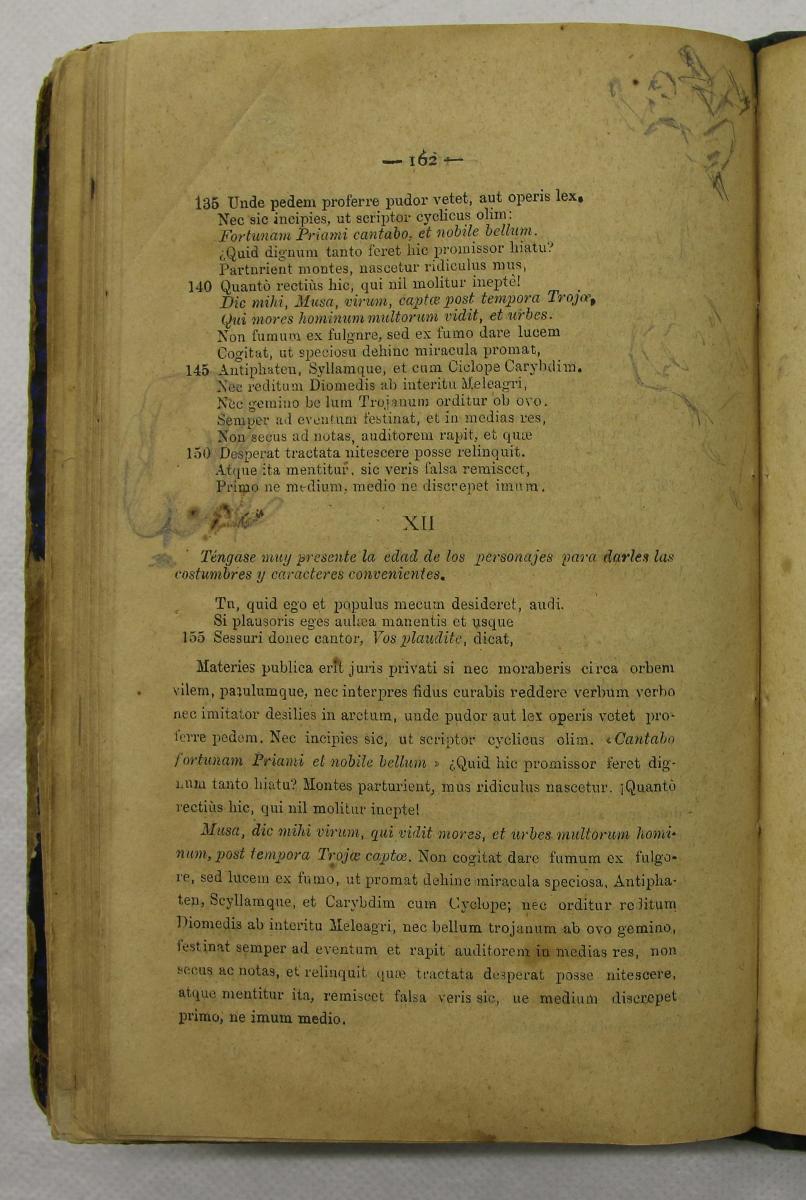 — 162 —
135 Unde pedem proferre pudor vetet, aut operis lex.
Nec sic incipies, ut scriptor cyclicus olim:
Fortunam Priami cantabo, et nobile bellum.
¿Quid dignum tanto feret hic promissor hiatu?
Partnrient montes, nascetur ridiculus mus,
140 Quantò rectiùs hic, qui nil molitur ineptè!
Dic mihi, Musa, virum, captœ post tempora Trojœ,
Qui mores hominum multorum vidit, et urbes.
Non fumum ex fulgnre, sed ex fumo dare lucem
Cogitat, ut speciosu dehinc miracula promat,
145 Antiphaten, Syllamque, et cum Ciclope Carybdim.
Nec reditum Diomedis ab interitu Meleagri,
Nec gemino be lum Trojanum orditur ob ovo.
Semper ad eventum festinat, et in medias res,
Non secus ad notas, auditorem rapit, et quæ
150 Desperat tractata nitescere posse relinquit.
Atque ita mentitur, sic veris falsa remiscet,
Primo ne medium, medio ne discrepet imum.
XII
Téngase muy presente la edad de los personajes para darles las
costumbres y caracteres convenientes.
Tu, quid ego et populus mecum desideret, audi.
Si plausoris eges aulæa manentis et usque
155 Sessuri donec cantor, Vos plaudite, dicat,
Materies publica erit juris privati si nec moraberis circa orbem
vilem, patulumque, nec interpres fidus curabis reddere verbum verbo
nec imitator desilies in arctum, unde pudor aut lex operis vetet pro-
ferre pedem. Nec incipies sic, ut scriptor cyclicus olim. «Cantabo
fortunam Priami et nobile bellum » ¿Quid hic promissor feret dig-
num tanto hiatu? Montes parturient, mus ridiculus nascetur. ¡Quantò
rectiùs hic, qui nil molitur inepte!
Musa, dic mihi virum, qui vidit mores, et urbes multorum homi-
num, post tempora Trojœ captœ. Non cogitat dare fumum ex fulgo-
re, sed lucem ex fumo, ut promat dehinc miracula speciosa, Antipha-
ten, Scyllamque, et Carybdim cum Cyclope; nec orditur reditum
Diomedis ab interitu Meleagri, nec bellum trojanum ab ovo gemino,
festinat semper ad eventum et rapit auditorem in medias res, non
secus ac notas, et relinquit quæ tractata desperat posse nitescere,
atque mentitur ita, remiscet falsa veris sic, ue medium discrepet
primo, ne imum medio.